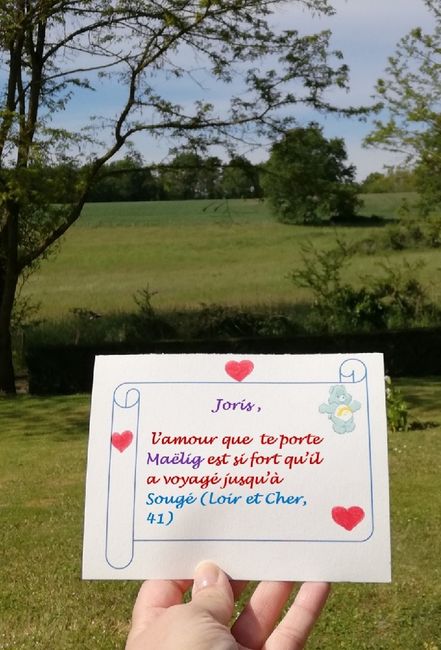 Joris,
l'amour que te porte
Maëlig est si fort qu'il
a voyagé jusqu'à
Sougé (Loir et Cher,
41)